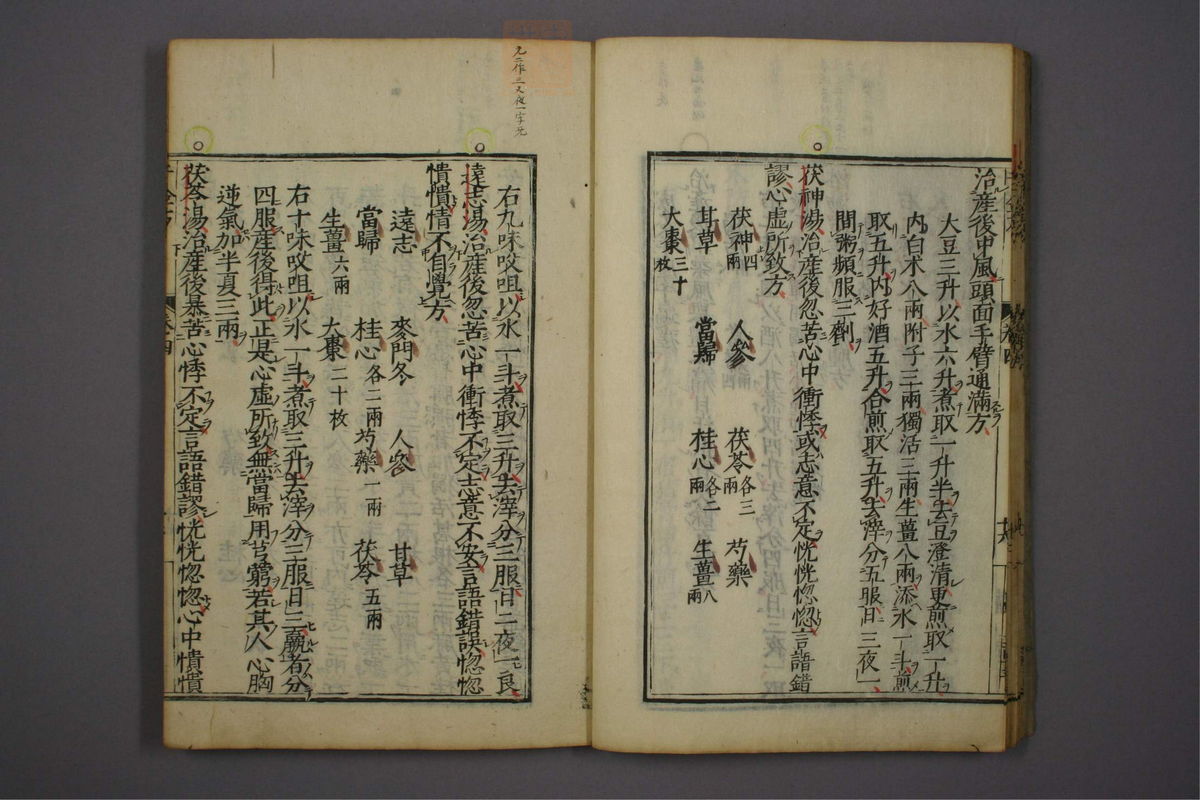 治産後中風頭面手臂通滿方
大豆三升以水六升煮取一升半去豆澄清更煎取一升
内白朮八兩附子三兩獨活三兩生薑八兩添水一斗煎
取五升内好酒五升合煎取五升去滓分五服日三夜二
間粥頻服三劑
茯神湯治産後忽苦心中衝悸或志意不定恍恍惚惚言語錯
謬心虚所致方
茯神四兩 人參 茯苓各三兩 芍藥
甘草 當歸 桂心各二兩 生薑八兩
大棗三十枚
右九味㕮咀以水一斗煮取三升去滓分三服日三夜一良
遠志湯治産後忽苦心中衝悸不定志意不安言語錯誤惚惚
憒憒情不自覺方
遠志 麥門冬 人參 甘草
當歸 桂心各二兩 芍藥一兩 茯苓五兩
生薑六兩 大棗二十枚
右十味㕮咀以水一斗煮取三升去滓分三服日三羸者分
四服産後得此正是心虚所致無當歸用芎藭若其人心胸
逆氣加半夏三兩
茯苓湯治産後暴苦心悸不定言語錯謬恍恍惚惚心中憒憒